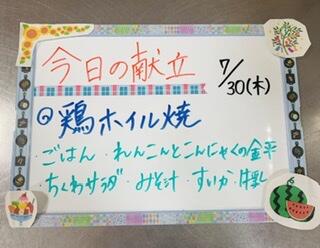 今日の献立
7/30(木)
◎鶏ホイル焼
・ごはん ・れんこんとこんにゃくの金平
・ちくわサラダ ・みそ汁 ・すいか ・牛乳